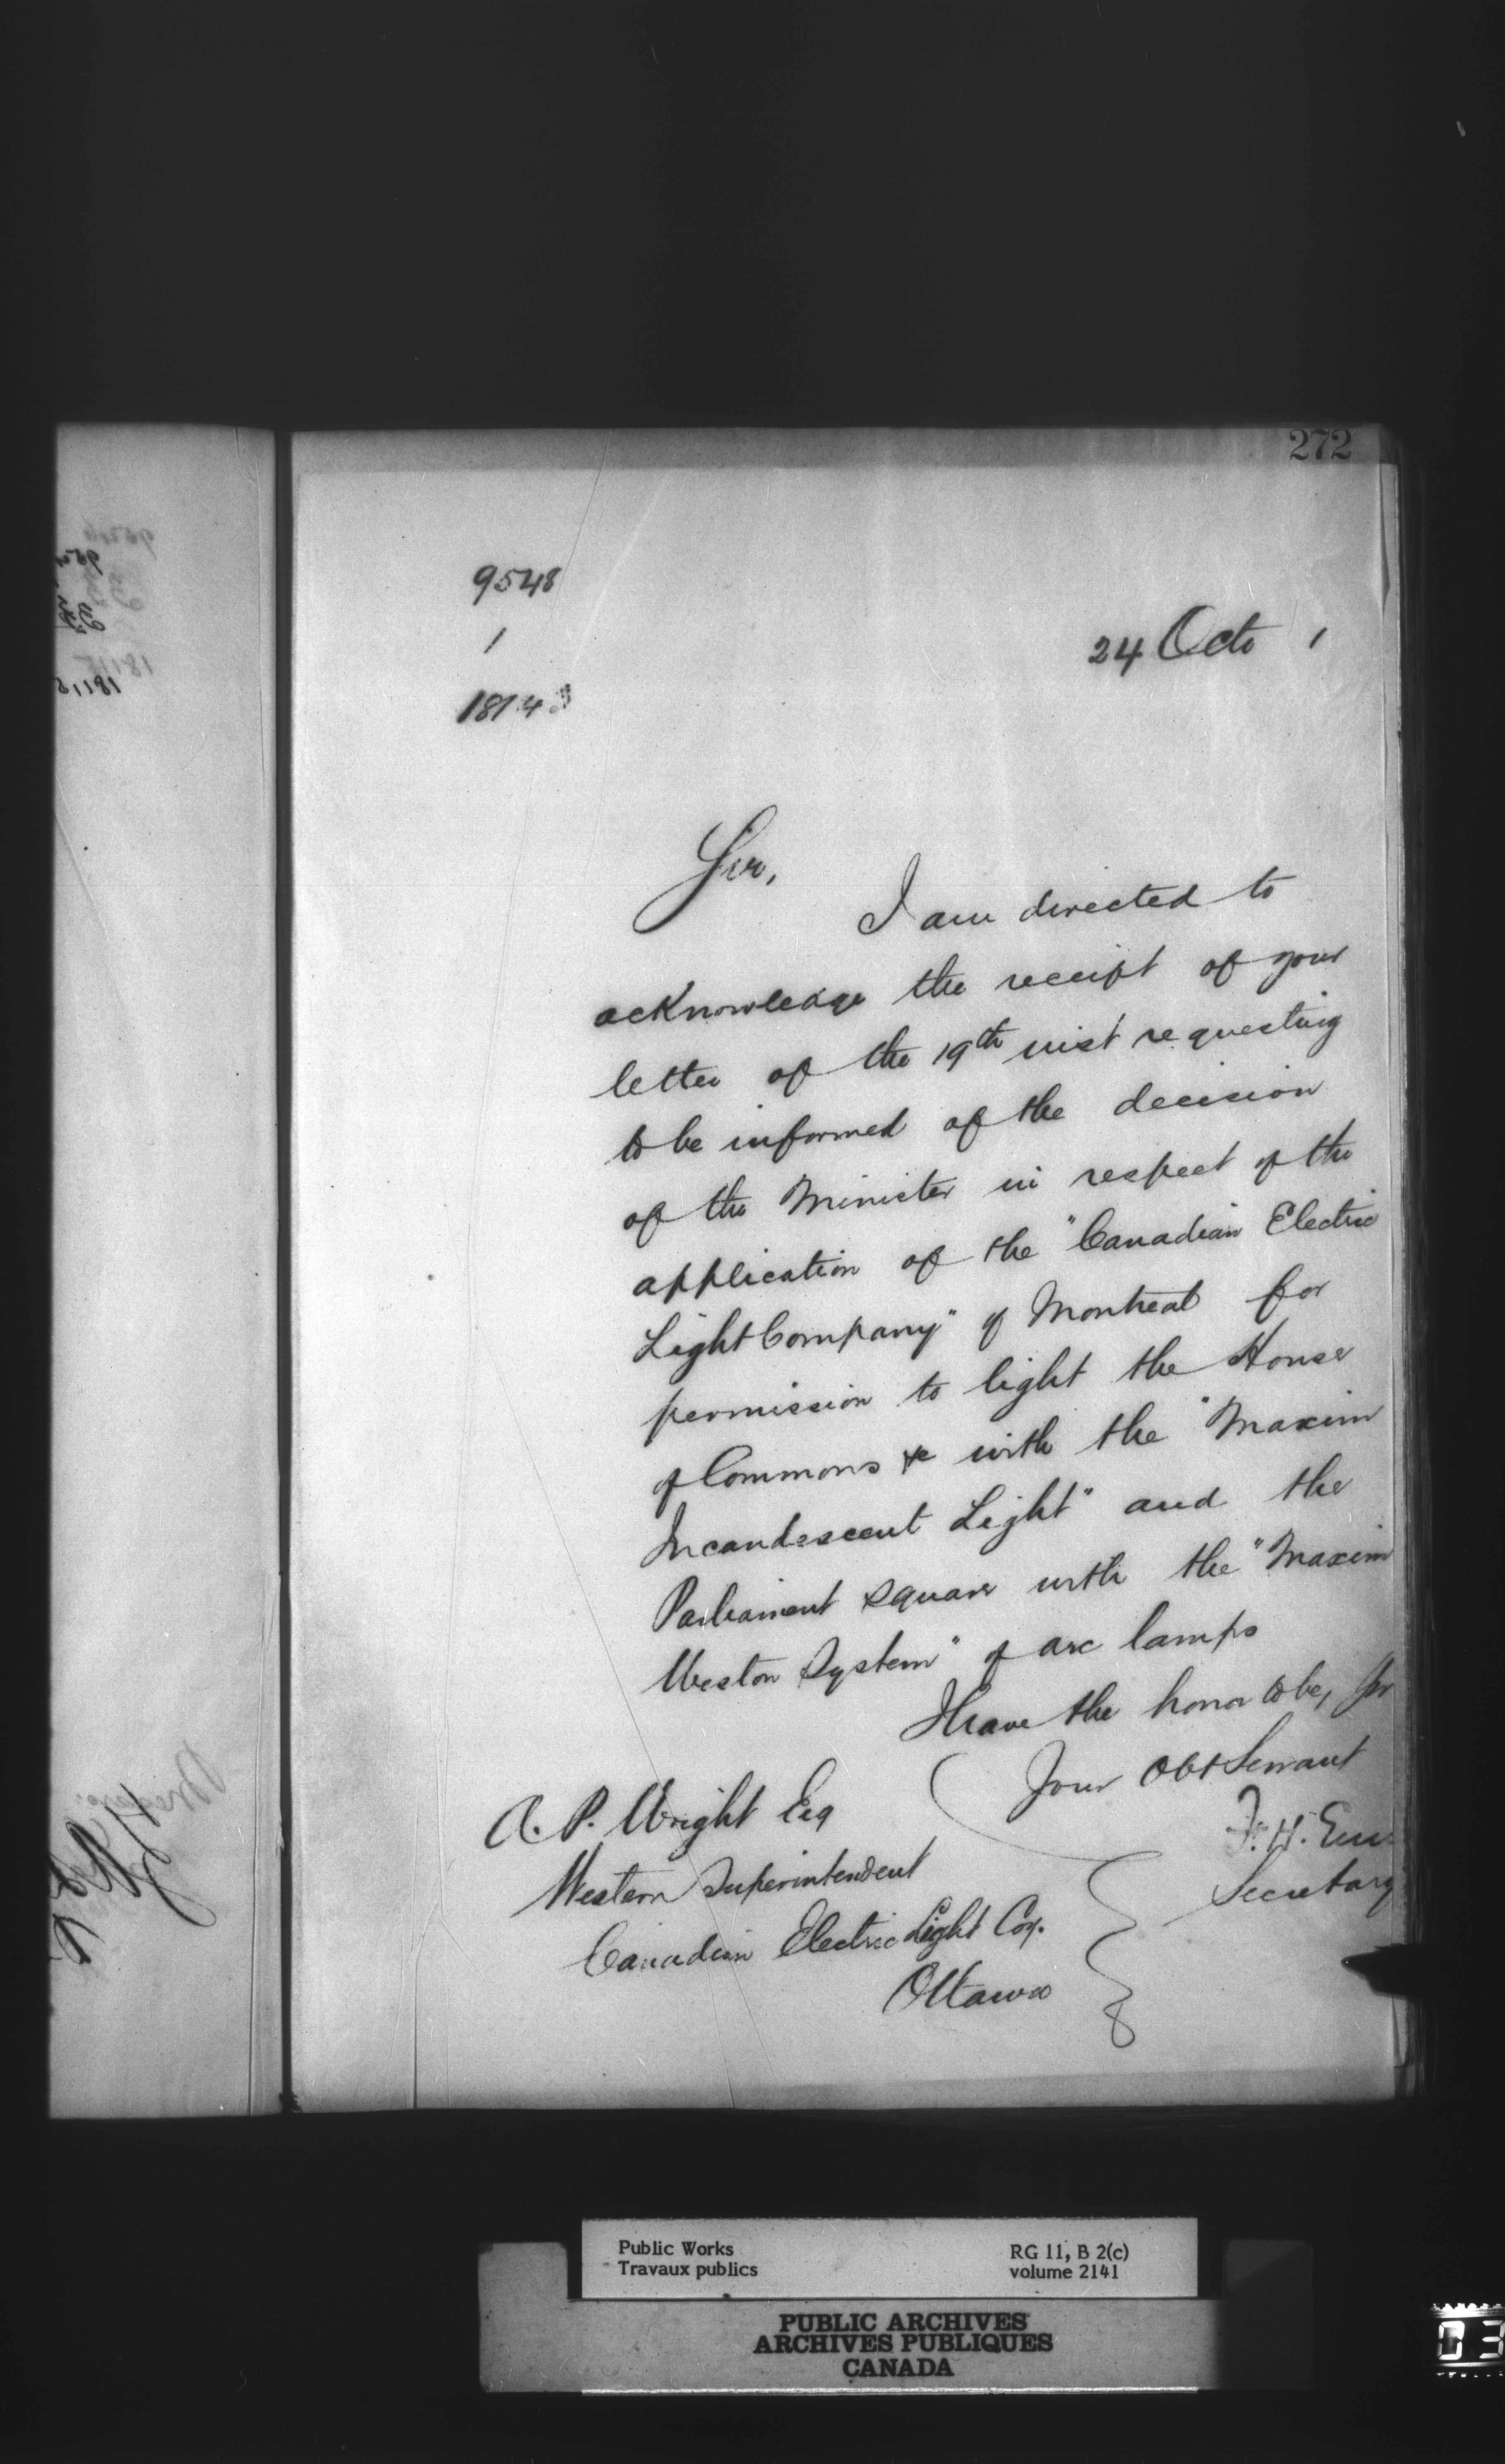 272
9548
1
24 Octo 1
Sir,
I am directed to
acknowledge the receipt of your
letter of the 19th inst requesting
to be informed of the decision
of the Minister in respect of the
application of the "Canadian Electric
Light Company" of Montreal for
permission to light the House
of Commons &c with the "Maxim
Incandescent Light" and the
Parliament Square with the "Maxim
Weston System" of arc lamps
I have the honor to be, Sir
Your Obt Servant
F. H. Enn
Secretary
A. P. Wright Esq
Western Superintendent
Canadian Electric Light Coy.
Ottawa
Public Works
Travaux publics
RG 11, B 2(c)
volume 2141
PUBLIC ARCHIVES
ARCHIVES PUBLIQUES
CANADA
03